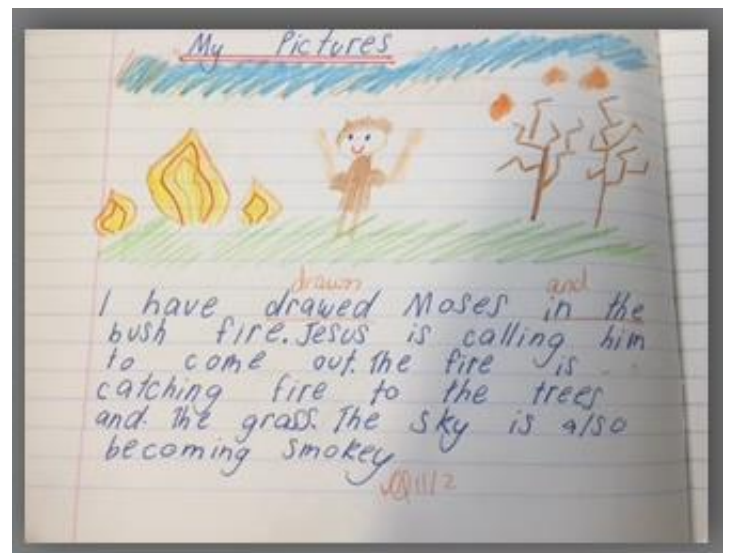 My Pictures
drawn and
I have drawed Moses in the
bush fire. Jesus is calling him
to come out. The fire is
catching fire to the trees
and. The grass. The sky is also
becoming smokey
11/2